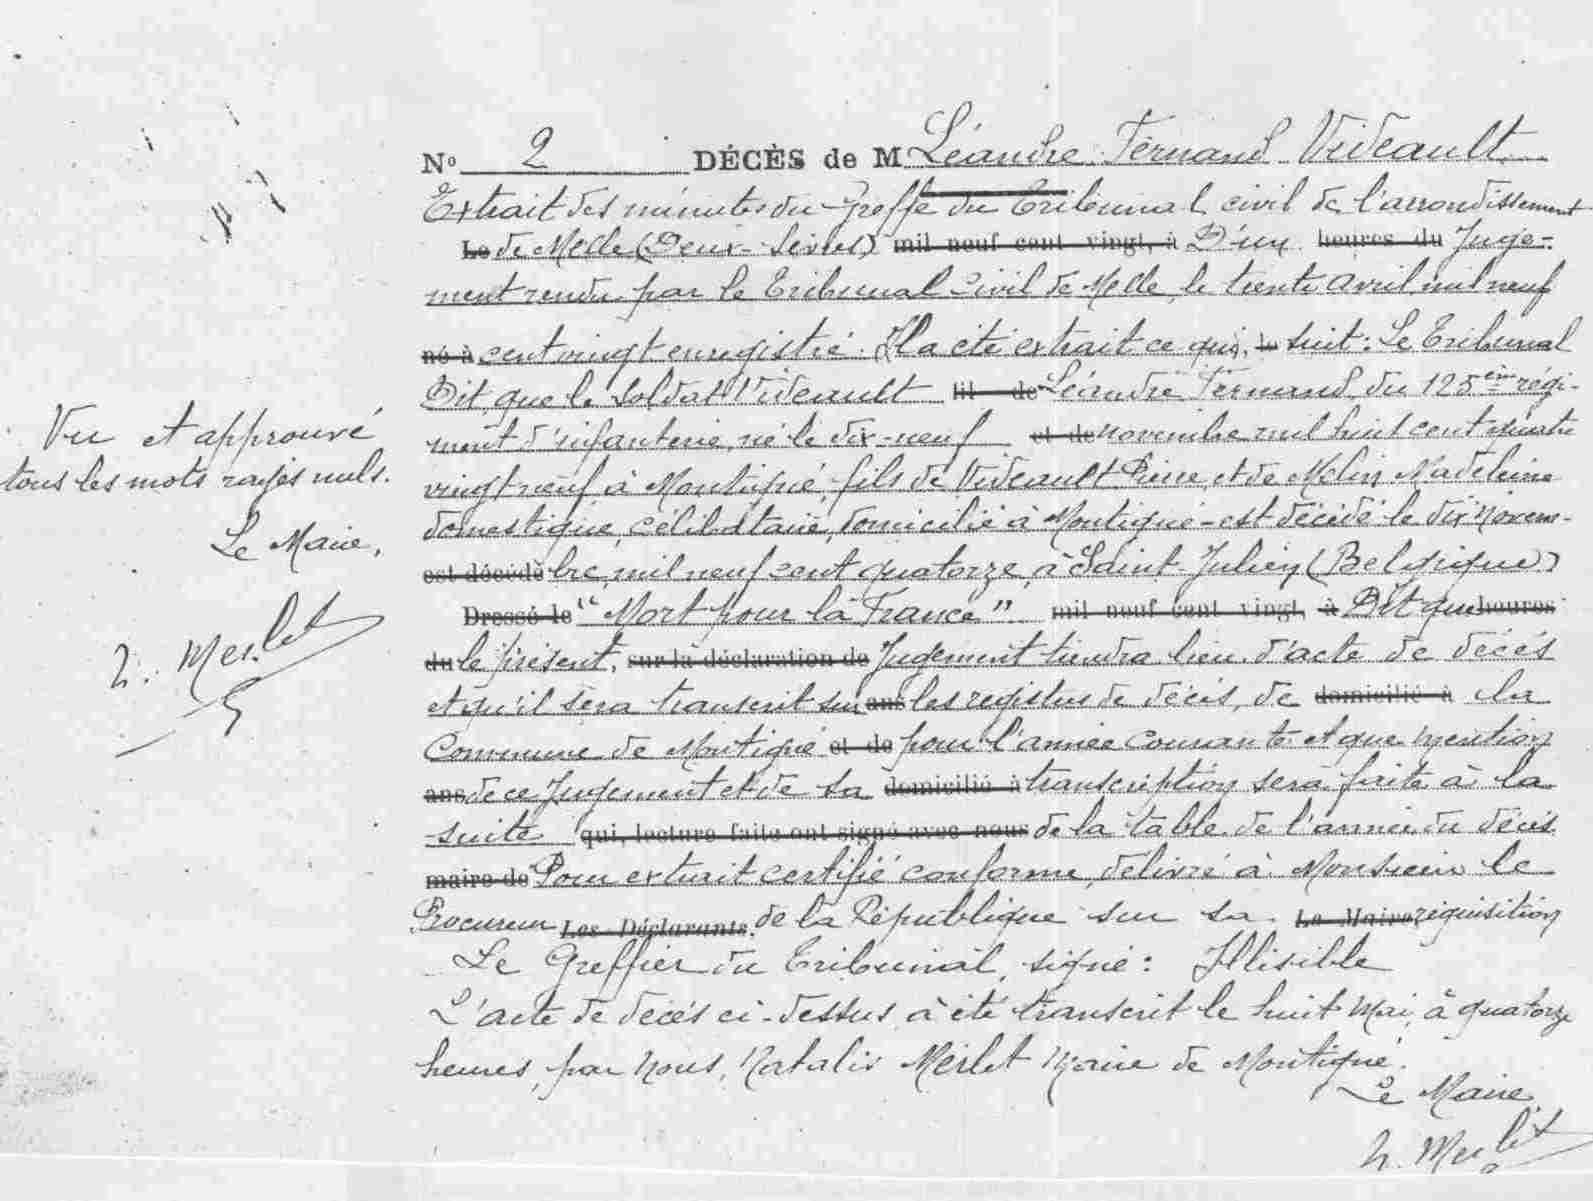 N° 2 DÉCÈS de M Léandre Fernand Videault
Extrait des minutes du Greffe du Tribunal civil de l'arrondissement
Le de Melle (Deux-Sèvres) mil neuf cent vingt, à D'un heures du Juge-
ment rendu par le Tribunal Civil de Melle, le trente avril mil neuf
né à cent vingt enregistré. Il a été extrait ce qui, le suit : Le Tribunal
Dit que le Soldat Videault fil de Léandre Fernand du 125ème régi-
ment d'infanterie, né le dix-neuf et de novembre mil huit cent quatre
vingt neuf à Montigné, fils de Videault Pierre et de Melin Madeleine
domestique, célibataire, domicilié à Montigné - est décédé le dix novem-
est décédé bre mil neuf cent quatorze, à Saint-Julien (Belgique)
Dressé le "Mort pour la France" mil neuf cent vingt, à Dit que heures
du le présent, sur la déclaration de Jugement tiendra lieu d'acte de décès
et qu'il sera transcrit sur ans les registres de décès, de domicilié à la
Commune de Montigné et de pour l'année courante et que mention
ans de ce Jugement et de sa domicilié à transcription sera faite à la
suite qui, lecture faite ont signé avec nous de la table de l'année du décès.
maire de Pour extrait certifié conforme, délivré à Monsieur le
Procureur Les Déclarants, de la République sur sa Le Maire réquisition
Le Greffier du Tribunal, signé : Illisible
L'acte de décès ci-dessus a été transcrit le huit Mai, à quatorze
heures, par Nous, Natalis Merlet Maire de Montigné.
Le Maire
N. Merlet
Vu et approuvé
tous les mots rayés nuls.
Le Maire,
N. Merlet